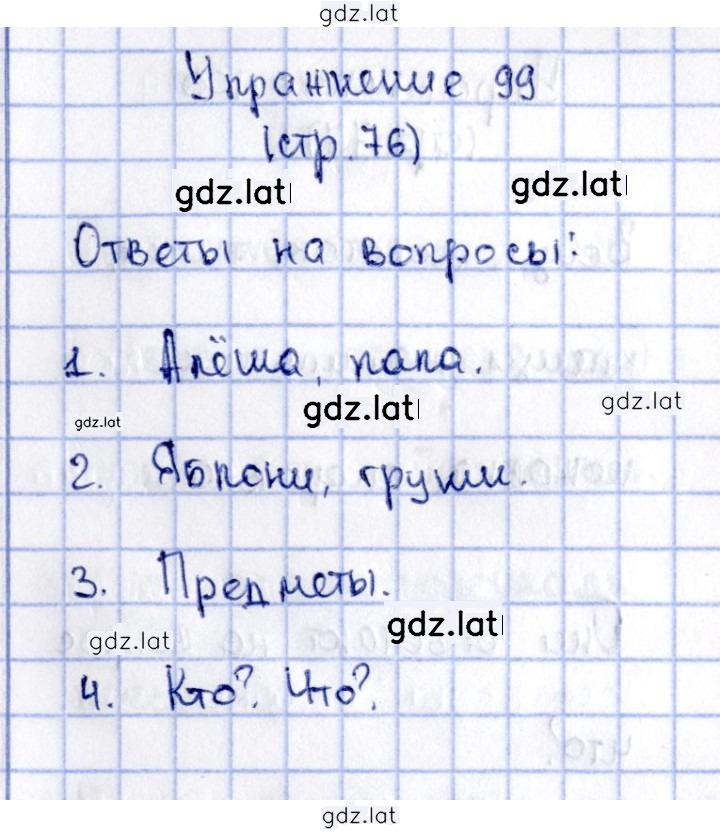 gdz.lat
Упражнение 99
(стр. 76)
gdz.lat gdz.lat
Ответы на вопросы:
1. Алёша, папа.
gdz.lat gdz.lat gdz.lat
2. Яблони, груши.
3. Предметы.
gdz.lat gdz.lat
4. Кто?. Что?.
gdz.lat